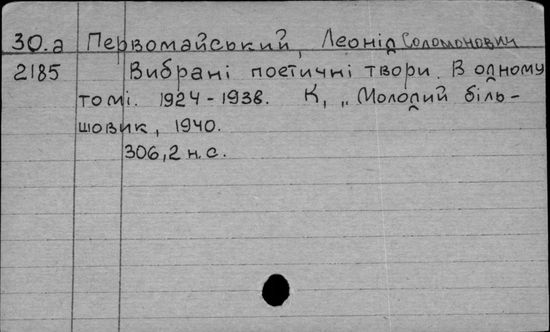 30.а Первомайський, Леонід Соломонович
2185 Вибрані поетичні твори. В одному
томі. 1924-1938. К, „Молодий біль-
шовик, 1940.
306,2 н.с.